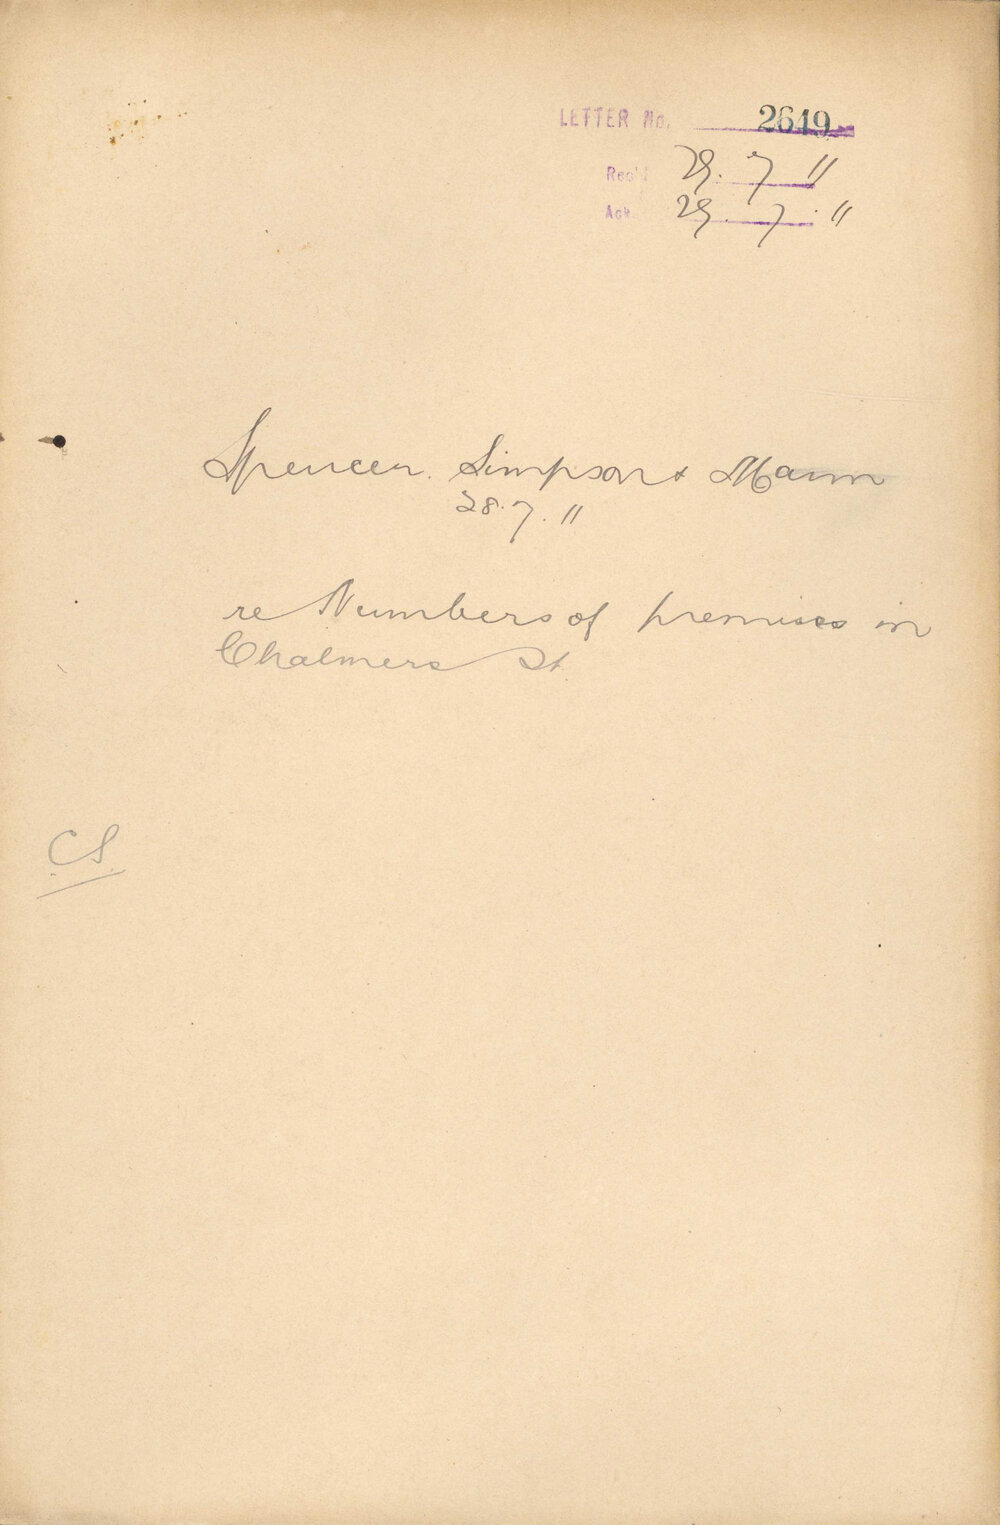 LETTER No. 2649
Rec'd 29. 7. 11
Ack. 29. 7. 11
Spencer. Simpson & Mann
28. 7. 11
re Numbers of premises in
Chalmers St
CS